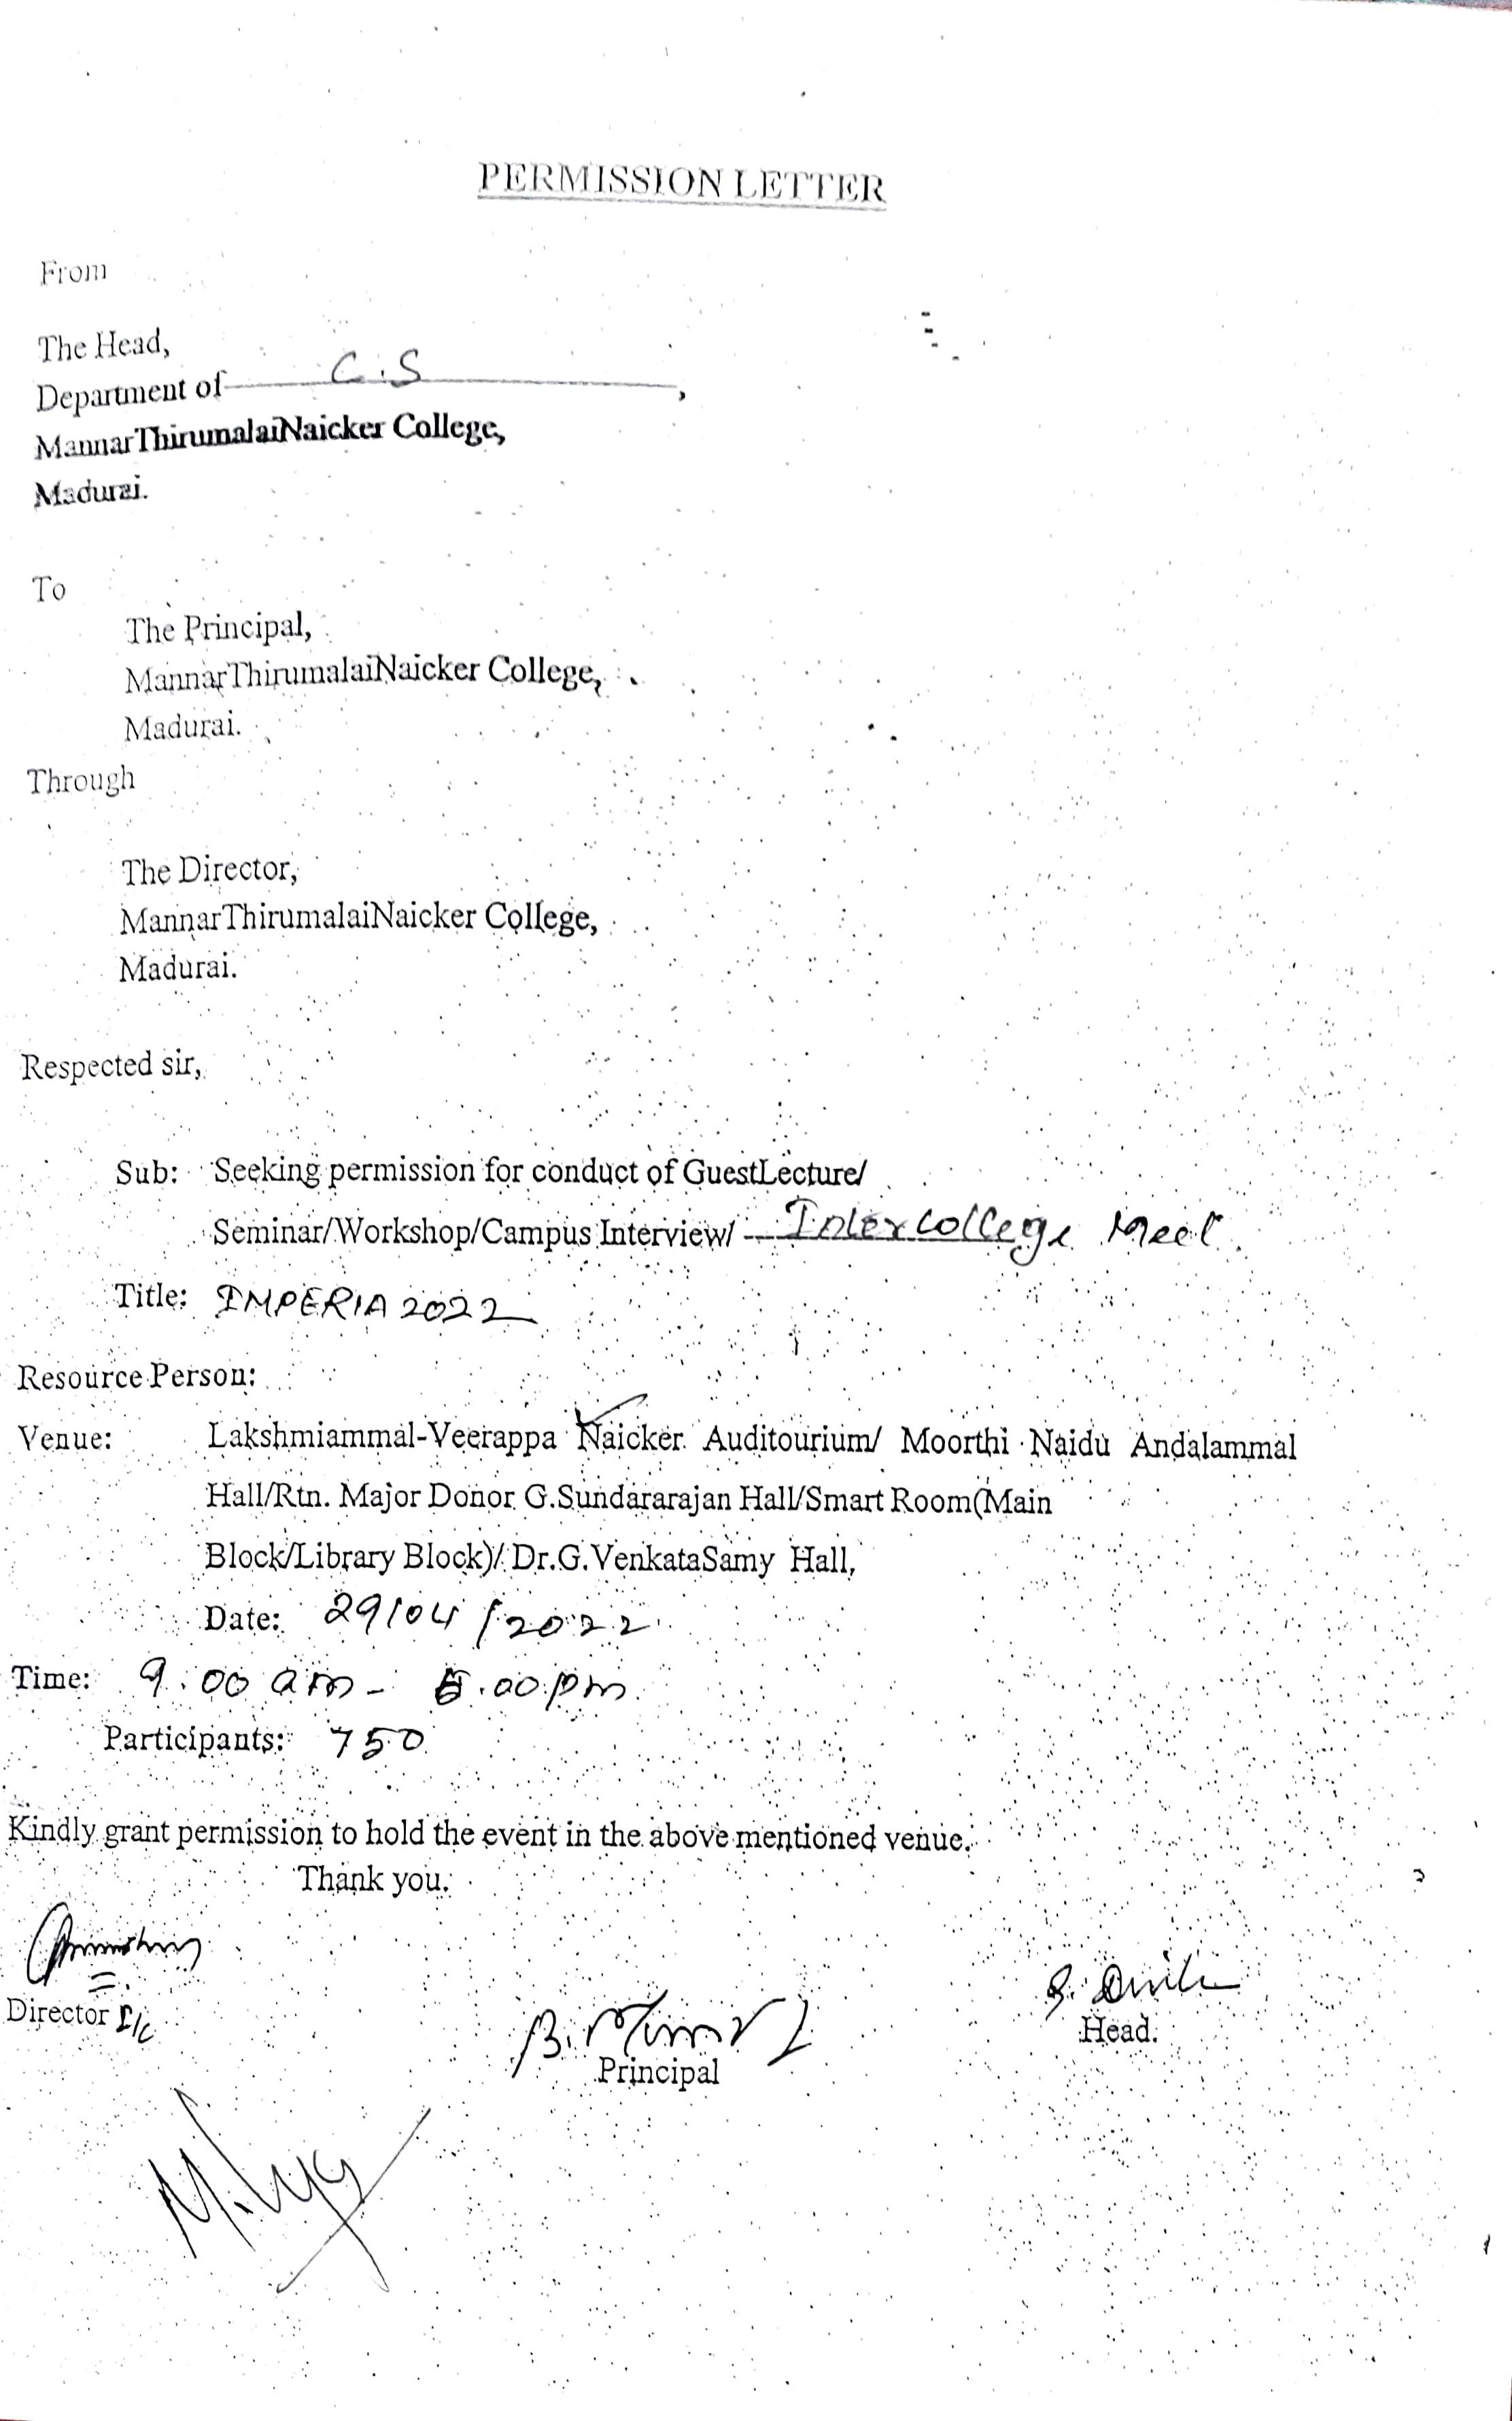 PERMISSION LETTER
From
The Head,
Department of C.S,
MannarThirumalaiNaicker College,
Madurai.
To
The Principal,
MannarThirumalaiNaicker College,
Madurai.
Through
The Director,
MannarThirumalaiNaicker College,
Madurai.
Respected sir,
Sub: Seeking permission for conduct of GuestLecture/
Seminar/Workshop/Campus Interview/ Intercollege Meet.
Title: IMPERIA 2022
Resource Person:
Venue: Lakshmiammal-Veerappa Naicker Auditourium/ Moorthi Naidu Andalammal
Hall/Rtn. Major Donor G.Sundararajan Hall/Smart Room(Main
Block/Library Block)/ Dr.G.VenkataSamy Hall,
Date: 29/04/2022
Time: 9.00 am - 5.00 pm
Participants: 750
Kindly grant permission to hold the event in the above mentioned venue.
Thank you.
Director I/c
Head.
Principal